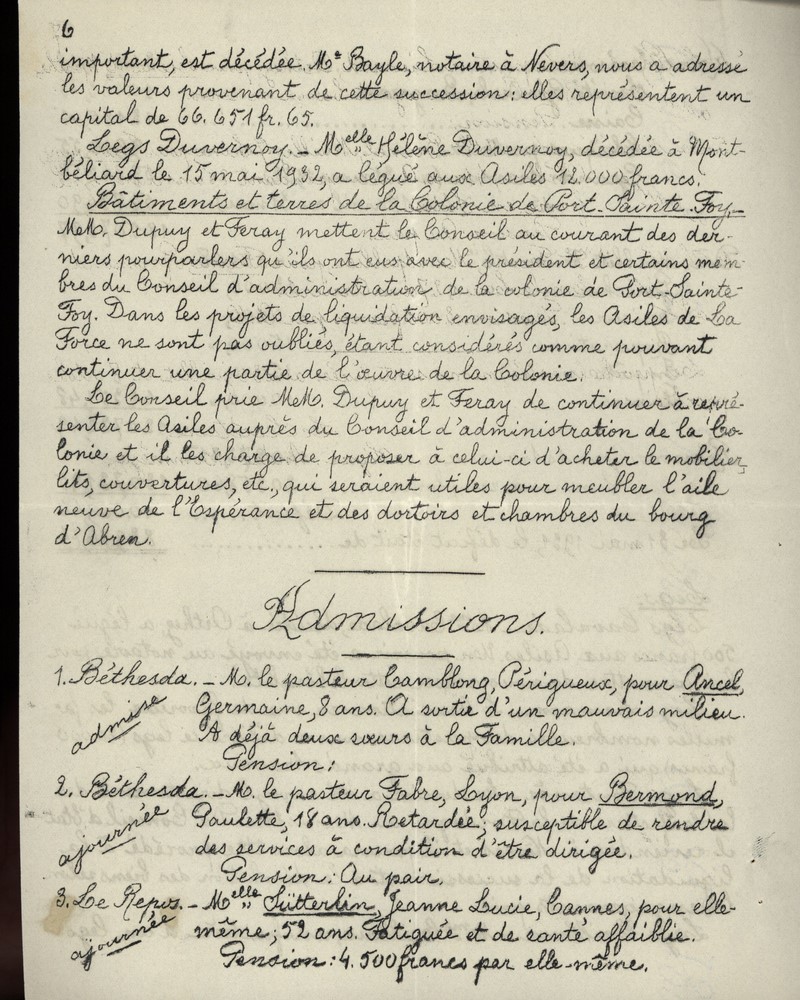 6
important, est décédée. Me Bayle, notaire à Nevers, nous a adressé
les valeurs provenant de cette succession : elles représentent un
capital de 66.651 fr. 65.
Legs Duvernoy. - Melle Hélène Duvernoy, décédée à Mont-
béliard le 15 mai 1932, a légué aux Asiles 12.000 francs.
Bâtiments et terres de la Colonie de Port-Sainte-Foy.-
MeM. Dupuy et Feray mettent le Conseil au courant des der-
niers pourparlers qu'ils ont eus avec le président et certains mem-
bres du Conseil d'administration de la colonie de Port-Sainte-
Foy. Dans les projets de liquidation envisagés, les Asiles de La
Force ne sont pas oubliés, étant considérés comme pouvant
continuer une partie de l'œuvre de la Colonie.
Le Conseil prie MeM. Dupuy et Feray de continuer à repré-
senter les Asiles auprès du Conseil d'administration de la Co-
lonie et il les charge de proposer à celui-ci d'acheter le mobilier,
lits, couvertures, etc., qui seraient utiles pour meubler l'aile
neuve de l'Espérance et des dortoirs et chambres du bourg
d'Abren.
Admissions.
1. Béthesda. - M. le pasteur Camblong, Périgueux, pour Ancel,
admise
Germaine, 8 ans. A sortir d'un mauvais milieu.
A déjà deux sœurs à la Famille.
Pension :
2. Béthesda. - M. le pasteur Fabre, Lyon, pour Bermond,
ajournée
Paulette, 18 ans. Retardée ; susceptible de rendre
des services à condition d'être dirigée.
Pension : Au pair.
3. Le Repos. - Melle Sütterlin, Jeanne Lucie, Cannes, pour elle-
ajournée
même ; 52 ans. Fatiguée et de santé affaiblie.
Pension : 4.500 francs par elle-même.